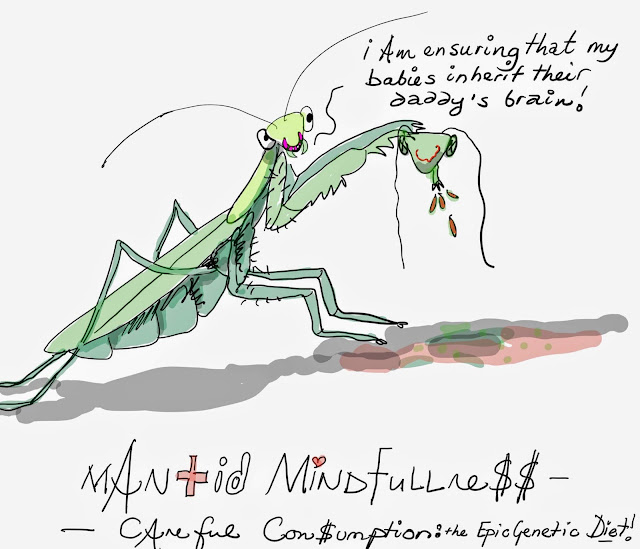 i Am ensuring that my
babies inherit their
daddy's brain!
MAN+id MiNDFULLNE$$ -
- CAReFUL Con$umption: the EpicGenetic Diet!